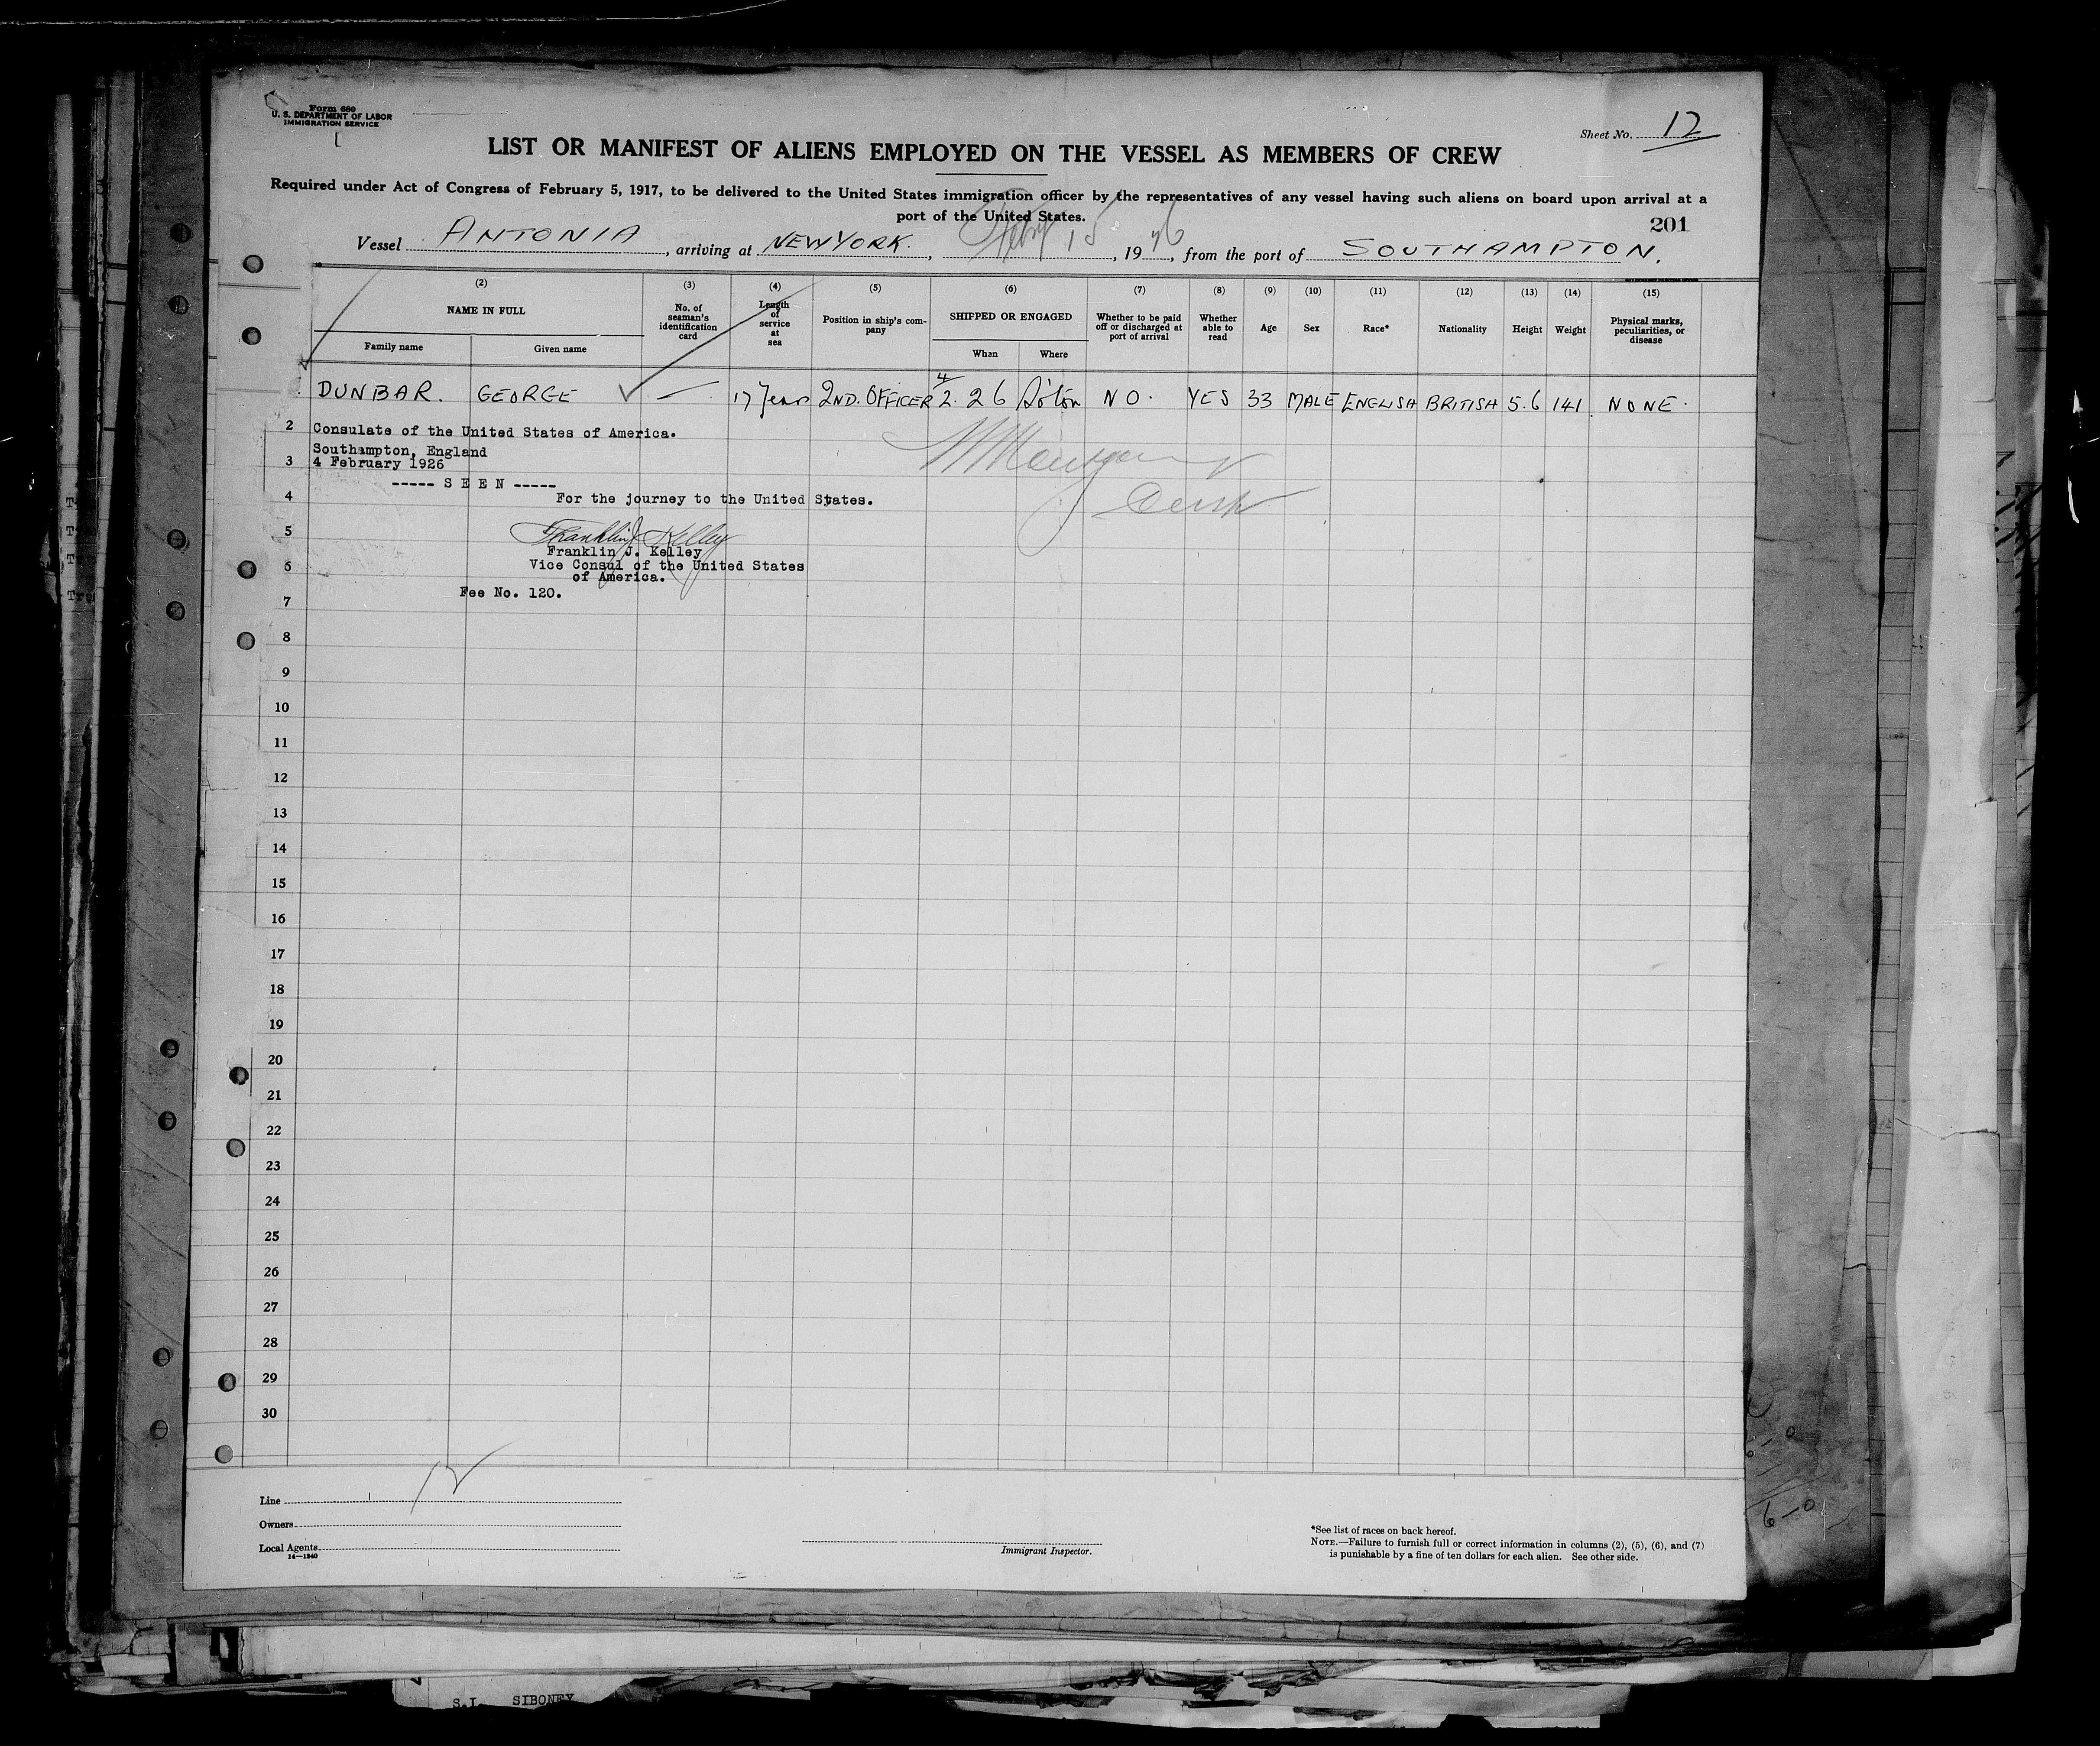 Form 680
U. S. DEPARTMENT OF LABOR
IMMIGRATION SERVICE
Sheet No. 12
LIST OR MANIFEST OF ALIENS EMPLOYED ON THE VESSEL AS MEMBERS OF CREW
Required under Act of Congress of February 5, 1917, to be delivered to the United States immigration officer by the representatives of any vessel having such aliens on board upon arrival at a
port of the United States.
201
Vessel ANTONIA, arriving at NEW YORK., 15, 1926, from the port of SOUTHAMPTON.
(2) (3) (4) (5) (6) (7) (8) (9) (10) (11) (12) (13) (14) (15)
NAME IN FULL
Family name
Given name
No. of
seaman's
identification
card
Length
of
service
at
sea
Position in ship's com-
pany
SHIPPED OR ENGAGED
When
Where
Whether to be paid
off or discharged at
port of arrival
Whether
able to
read
Age
Sex
Race*
Nationality
Height
Weight
Physical marks,
peculiarities, or
disease
DUNBAR. GEORGE — 17 Years 2ND. OFFICER 4 2. 26 So'ton NO. YES 33 MALE ENGLISH BRITISH 5.6 141 NONE.
2 Consulate of the United States of America.
Southampton, England
3 4 February 1926
----- S E E N -----
4 For the journey to the United States.
5 Franklin J. Kelley
Franklin J. Kelley
6 Vice Consul of the United States
of America.
Fee No. 120.
7
8
9
10
11
12
13
14
15
16
17
18
19
20
21
22
23
24
25
26
27
28
29
30
12
Line
Owners
Local Agents
14—1240
Immigrant Inspector.
*See list of races on back hereof.
NOTE.—Failure to furnish full or correct information in columns (2), (5), (6), and (7)
is punishable by a fine of ten dollars for each alien. See other side.
S.I. SIBONEY